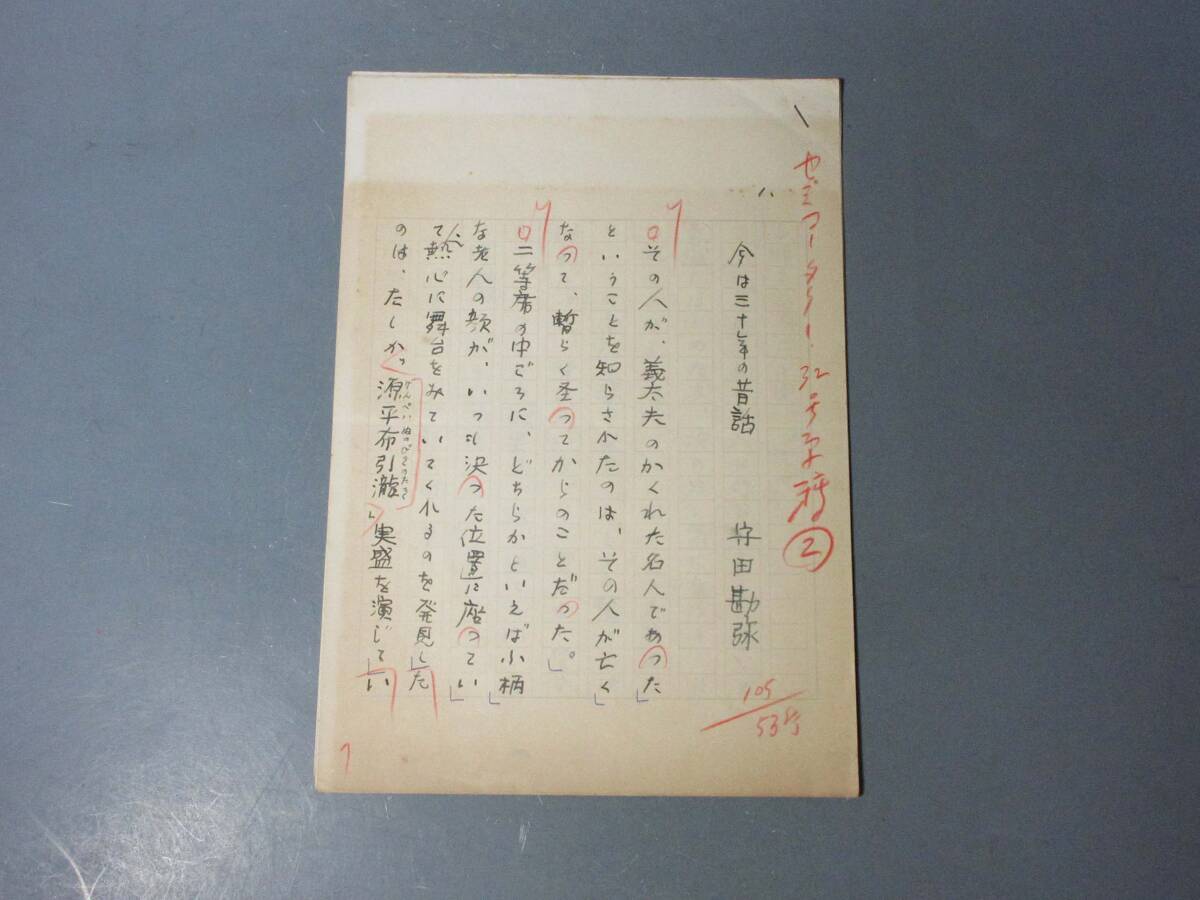 32号原稿②
今は三十年の昔話 守田勘弥
その人が、義太夫のかくれた名人であった
ということを知らされたのは、その人が亡く
なって、暫らく圣ってからのことだった。
二等席の中ごろに、どちらかといえば小柄
な老人の顔が、いつも決った位置に座ってい
て、熱心に舞台をみていてくれるのを発見した
のは、たしか「源平布引瀧」実盛を演じてい
げんぺいぬのびきのたき
105
53行